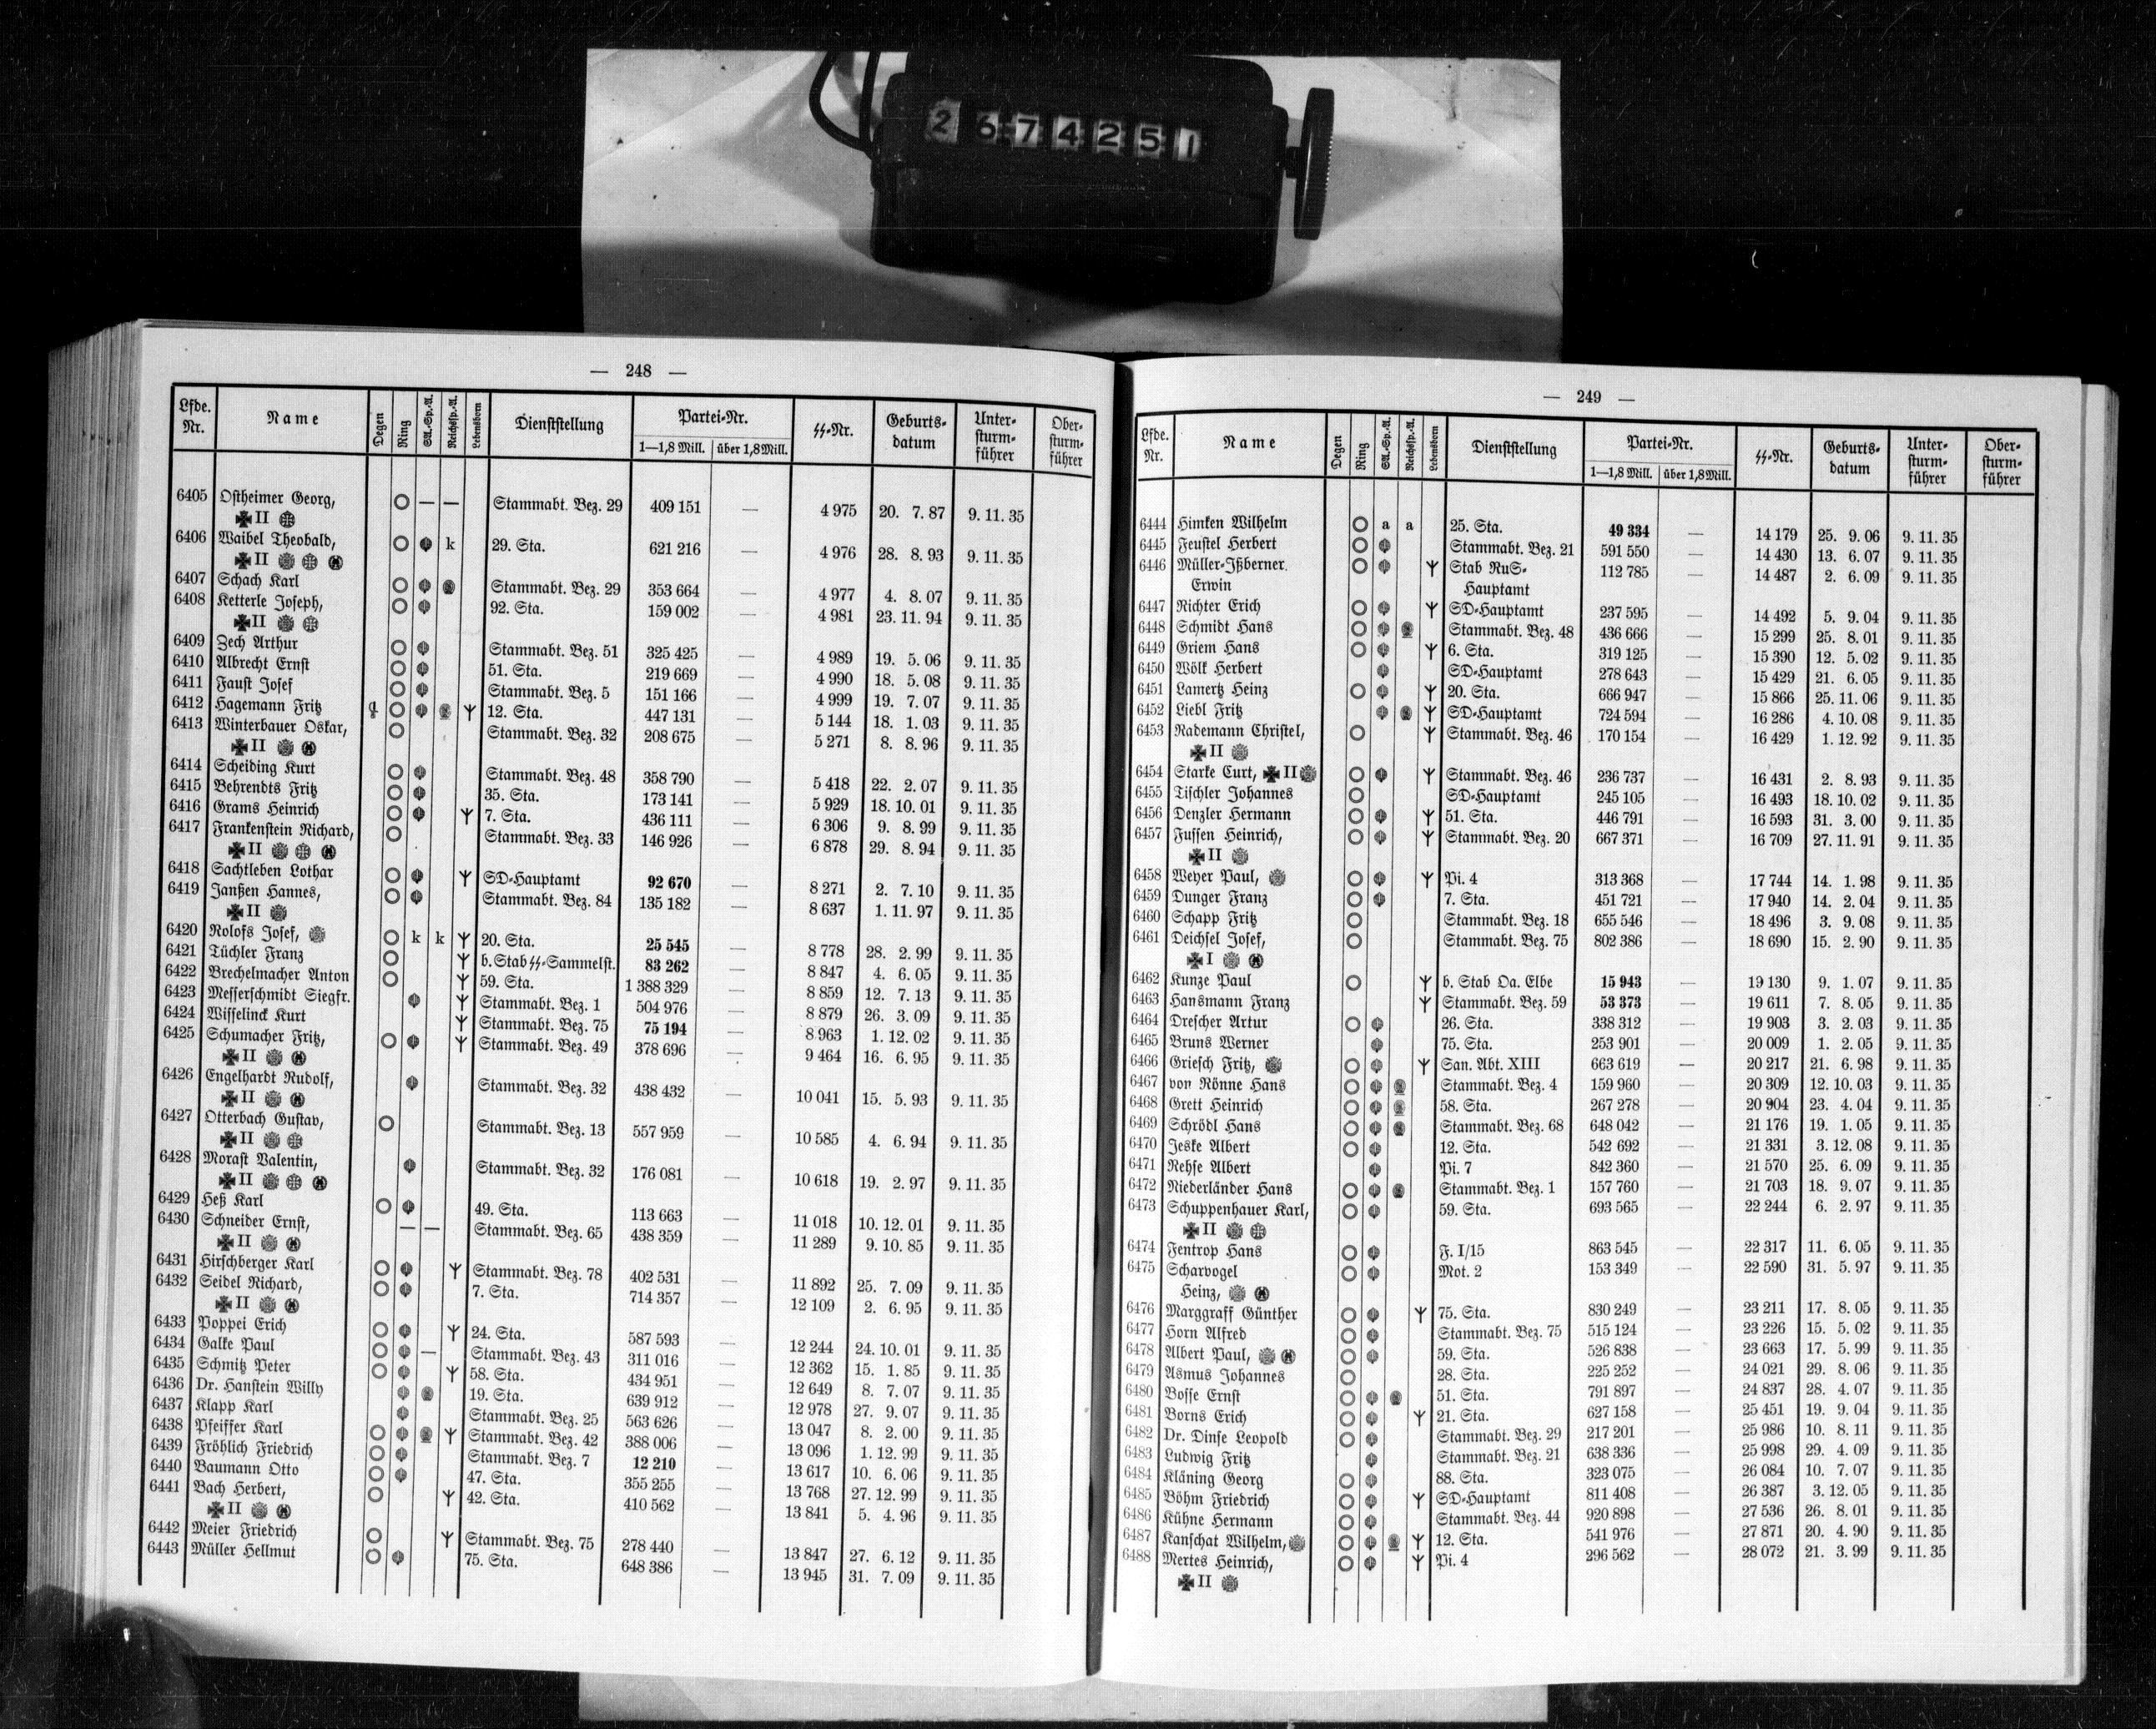 2674251
— 248 —
Lfde. Nr. Name Degen Ring SA.-Sp.-A. Reichssp.-A. Lebensborn Dienststellung Partei-Nr. 1—1,8 Mill. über 1,8 Mill. ᛋᛋ-Nr. Geburts-datum Unter-sturm-führer Ober-sturm-führer
6405 Ostheimer Georg, — — Stammabt. Bez. 29 409 151 — 4 975 20. 7. 87 9. 11. 35
II
6406 Waibel Theobald, k 29. Sta. 621 216 — 4 976 28. 8. 93 9. 11. 35
II
6407 Schach Karl Stammabt. Bez. 29 353 664 — 4 977 4. 8. 07 9. 11. 35
6408 Ketterle Joseph, 92. Sta. 159 002 — 4 981 23. 11. 94 9. 11. 35
II
6409 Zech Arthur Stammabt. Bez. 51 325 425 — 4 989 19. 5. 06 9. 11. 35
6410 Albrecht Ernst 51. Sta. 219 669 — 4 990 18. 5. 08 9. 11. 35
6411 Faust Josef Stammabt. Bez. 5 151 166 — 4 999 19. 7. 07 9. 11. 35
6412 Hagemann Fritz 12. Sta. 447 131 — 5 144 18. 1. 03 9. 11. 35
6413 Winterbauer Oskar, Stammabt. Bez. 32 208 675 — 5 271 8. 8. 96 9. 11. 35
II
6414 Scheiding Kurt Stammabt. Bez. 48 358 790 — 5 418 22. 2. 07 9. 11. 35
6415 Behrendts Fritz 35. Sta. 173 141 — 5 929 18. 10. 01 9. 11. 35
6416 Grams Heinrich 7. Sta. 436 111 — 6 306 9. 8. 99 9. 11. 35
6417 Frankenstein Richard, Stammabt. Bez. 33 146 926 — 6 878 29. 8. 94 9. 11. 35
II
6418 Sachtleben Lothar SD-Hauptamt 92 670 — 8 271 2. 7. 10 9. 11. 35
6419 Janßen Hannes, Stammabt. Bez. 84 135 182 — 8 637 1. 11. 97 9. 11. 35
II
6420 Rolofs Josef, k k 20. Sta. 25 545 — 8 778 28. 2. 99 9. 11. 35
6421 Tüchler Franz b. Stab ᛋᛋ-Sammelst. 83 262 — 8 847 4. 6. 05 9. 11. 35
6422 Brechelmacher Anton 59. Sta. 1 388 329 — 8 859 12. 7. 13 9. 11. 35
6423 Messerschmidt Siegfr. Stammabt. Bez. 1 504 976 — 8 879 26. 3. 09 9. 11. 35
6424 Wisselinck Kurt Stammabt. Bez. 75 75 194 — 8 963 1. 12. 02 9. 11. 35
6425 Schumacher Fritz, Stammabt. Bez. 49 378 696 — 9 464 16. 6. 95 9. 11. 35
II
6426 Engelhardt Rudolf, Stammabt. Bez. 32 438 432 — 10 041 15. 5. 93 9. 11. 35
II
6427 Otterbach Gustav, Stammabt. Bez. 13 557 959 — 10 585 4. 6. 94 9. 11. 35
II
6428 Morast Valentin, Stammabt. Bez. 32 176 081 — 10 618 19. 2. 97 9. 11. 35
II
6429 Heß Karl 49. Sta. 113 663 — 11 018 10. 12. 01 9. 11. 35
6430 Schneider Ernst, — — Stammabt. Bez. 65 438 359 — 11 289 9. 10. 85 9. 11. 35
II
6431 Hirschberger Karl Stammabt. Bez. 78 402 531 — 11 892 25. 7. 09 9. 11. 35
6432 Seidel Richard, 7. Sta. 714 357 — 12 109 2. 6. 95 9. 11. 35
II
6433 Poppei Erich 24. Sta. 587 593 — 12 244 24. 10. 01 9. 11. 35
6434 Galke Paul — Stammabt. Bez. 43 311 016 — 12 362 15. 1. 85 9. 11. 35
6435 Schmitz Peter 58. Sta. 434 951 — 12 649 8. 7. 07 9. 11. 35
6436 Dr. Hanstein Willy 19. Sta. 639 912 — 12 978 27. 9. 07 9. 11. 35
6437 Klapp Karl Stammabt. Bez. 25 563 626 — 13 047 8. 2. 00 9. 11. 35
6438 Pfeiffer Karl Stammabt. Bez. 42 388 006 — 13 096 1. 12. 99 9. 11. 35
6439 Fröhlich Friedrich Stammabt. Bez. 7 12 210 — 13 617 10. 6. 06 9. 11. 35
6440 Baumann Otto 47. Sta. 355 255 — 13 768 27. 12. 99 9. 11. 35
6441 Bach Herbert, 42. Sta. 410 562 — 13 841 5. 4. 96 9. 11. 35
II
6442 Meier Friedrich Stammabt. Bez. 75 278 440 — 13 847 27. 6. 12 9. 11. 35
6443 Müller Hellmut 75. Sta. 648 386 — 13 945 31. 7. 09 9. 11. 35
— 249 —
Lfde. Nr. Name Degen Ring SA.-Sp.-A. Reichssp.-A. Lebensborn Dienststellung Partei-Nr. 1—1,8 Mill. über 1,8 Mill. ᛋᛋ-Nr. Geburts-datum Unter-sturm-führer Ober-sturm-führer
6444 Himken Wilhelm a a 25. Sta. 49 334 — 14 179 25. 9. 06 9. 11. 35
6445 Feustel Herbert Stammabt. Bez. 21 591 550 — 14 430 13. 6. 07 9. 11. 35
6446 Müller-Ißberner Stab RuS- 112 785 — 14 487 2. 6. 09 9. 11. 35
Erwin Hauptamt
6447 Richter Erich SD-Hauptamt 237 595 — 14 492 5. 9. 04 9. 11. 35
6448 Schmidt Hans Stammabt. Bez. 48 436 666 — 15 299 25. 8. 01 9. 11. 35
6449 Griem Hans 6. Sta. 319 125 — 15 390 12. 5. 02 9. 11. 35
6450 Wölk Herbert SD-Hauptamt 278 643 — 15 429 21. 6. 05 9. 11. 35
6451 Lamertz Heinz 20. Sta. 666 947 — 15 866 25. 11. 06 9. 11. 35
6452 Liebl Fritz SD-Hauptamt 724 594 — 16 286 4. 10. 08 9. 11. 35
6453 Rademann Christel, Stammabt. Bez. 46 170 154 — 16 429 1. 12. 92 9. 11. 35
II
6454 Starke Curt, II Stammabt. Bez. 46 236 737 — 16 431 2. 8. 93 9. 11. 35
6455 Tischler Johannes SD-Hauptamt 245 105 — 16 493 18. 10. 02 9. 11. 35
6456 Denzler Hermann 51. Sta. 446 791 — 16 593 31. 3. 00 9. 11. 35
6457 Fussen Heinrich, Stammabt. Bez. 20 667 371 — 16 709 27. 11. 91 9. 11. 35
II
6458 Weyer Paul, Pi. 4 313 368 — 17 744 14. 1. 98 9. 11. 35
6459 Dunger Franz 7. Sta. 451 721 — 17 940 14. 2. 04 9. 11. 35
6460 Schapp Fritz Stammabt. Bez. 18 655 546 — 18 496 3. 9. 08 9. 11. 35
6461 Deichsel Josef, Stammabt. Bez. 75 802 386 — 18 690 15. 2. 90 9. 11. 35
I
6462 Kunze Paul b. Stab Oa. Elbe 15 943 — 19 130 9. 1. 07 9. 11. 35
6463 Hansmann Franz Stammabt. Bez. 59 53 373 — 19 611 7. 8. 05 9. 11. 35
6464 Drescher Artur 26. Sta. 338 312 — 19 903 3. 2. 03 9. 11. 35
6465 Bruns Werner 75. Sta. 253 901 — 20 009 1. 2. 05 9. 11. 35
6466 Griesch Fritz, San. Abt. XIII 663 619 — 20 217 21. 6. 98 9. 11. 35
6467 von Rönne Hans Stammabt. Bez. 4 159 960 — 20 309 12. 10. 03 9. 11. 35
6468 Grett Heinrich 58. Sta. 267 278 — 20 904 23. 4. 04 9. 11. 35
6469 Schrödl Hans Stammabt. Bez. 68 648 042 — 21 176 19. 1. 05 9. 11. 35
6470 Jeske Albert 12. Sta. 542 692 — 21 331 3. 12. 08 9. 11. 35
6471 Rehse Albert Pi. 7 842 360 — 21 570 25. 6. 09 9. 11. 35
6472 Niederländer Hans Stammabt. Bez. 1 157 760 — 21 703 18. 9. 07 9. 11. 35
6473 Schuppenhauer Karl, 59. Sta. 693 565 — 22 244 6. 2. 97 9. 11. 35
II
6474 Fentrop Hans F. I/15 863 545 — 22 317 11. 6. 05 9. 11. 35
6475 Scharvogel Mot. 2 153 349 — 22 590 31. 5. 97 9. 11. 35
Heinz,
6476 Marggraff Günther 75. Sta. 830 249 — 23 211 17. 8. 05 9. 11. 35
6477 Horn Alfred Stammabt. Bez. 75 515 124 — 23 226 15. 5. 02 9. 11. 35
6478 Albert Paul, 59. Sta. 526 838 — 23 663 17. 5. 99 9. 11. 35
6479 Asmus Johannes 28. Sta. 225 252 — 24 021 29. 8. 06 9. 11. 35
6480 Bosse Ernst 51. Sta. 791 897 — 24 837 28. 4. 07 9. 11. 35
6481 Borns Erich 21. Sta. 627 158 — 25 451 19. 9. 04 9. 11. 35
6482 Dr. Dinse Leopold Stammabt. Bez. 29 217 201 — 25 986 10. 8. 11 9. 11. 35
6483 Ludwig Fritz Stammabt. Bez. 21 638 336 — 25 998 29. 4. 09 9. 11. 35
6484 Kläning Georg 88. Sta. 323 075 — 26 084 10. 7. 07 9. 11. 35
6485 Böhm Friedrich SD-Hauptamt 811 408 — 26 387 3. 12. 05 9. 11. 35
6486 Kühne Hermann Stammabt. Bez. 44 920 898 — 27 536 26. 8. 01 9. 11. 35
6487 Kanschat Wilhelm, 12. Sta. 541 976 — 27 871 20. 4. 90 9. 11. 35
6488 Mertes Heinrich, Pi. 4 296 562 — 28 072 21. 3. 99 9. 11. 35
II